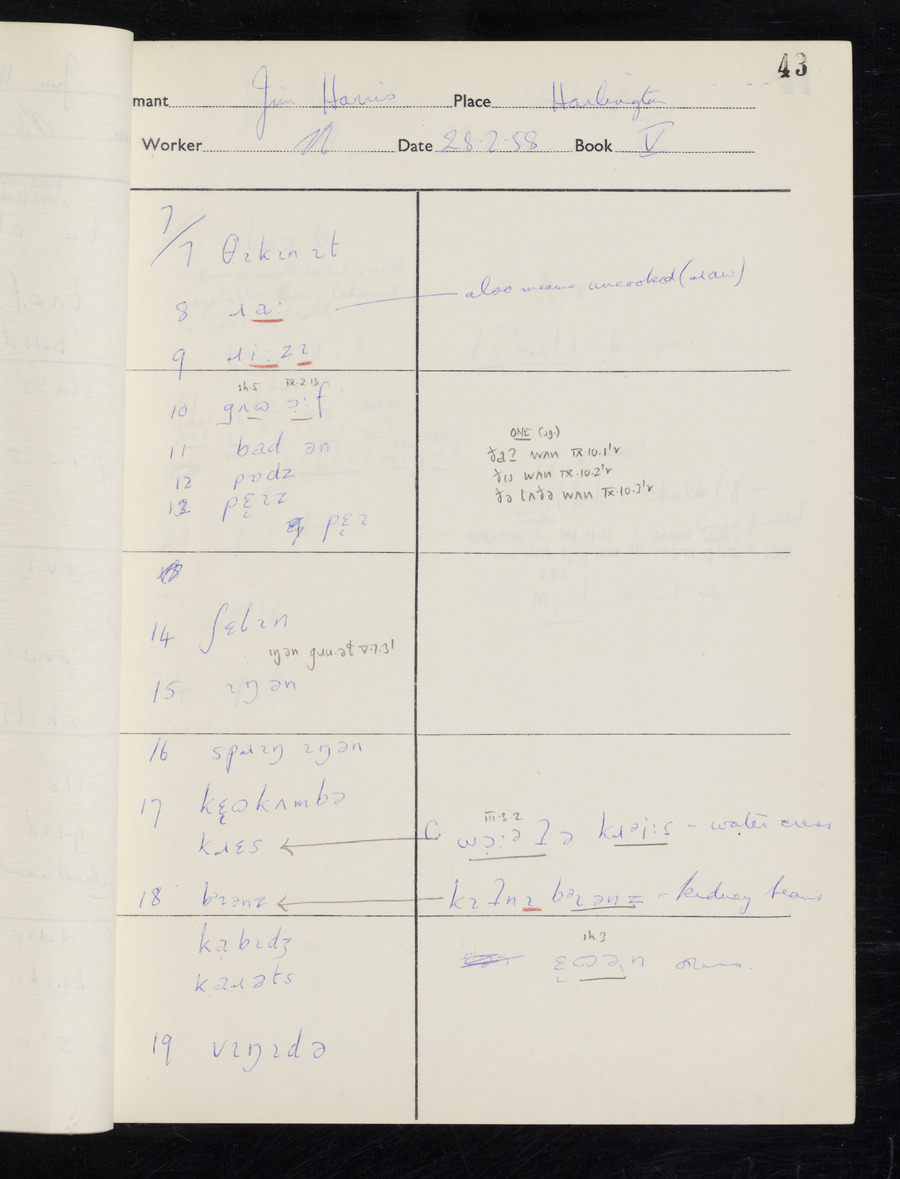 43
mant Jim Harris Place Harlington
Worker N Date 28.2.58 Book V
7/7 θɪkɪn ɪt
8 ɹa: also means uncooked (raw)
9 ɹi:zɪ
sh.5 IX.2.13
10 gɹɷ ɔ:f
11 bad ən
12 pɒdz
13 pɛ̣ɪz
pɛ̣ɪ
ONE (sg.)
ðaʔ wʌn IX.10.1'r
ðɪs wʌn IX.10.2'r
ðə tʌðə wʌn IX.10.3'r
14 ʃɛlɪn
ɪŋən V.7.3'
15 ɪŋən
16 spɹɪŋ ɪŋən
17 kɛ̣ɷkʌmbə
III.3.2
kɹɛs C kɹəi:s – water cress
18 bɪənz kɪʔnɪ bəɪənz – kidney beans
kabɪdʒ
kaɹəts
sh.3
ɛ̣ɷəṇ
19 vɪŋɪdə